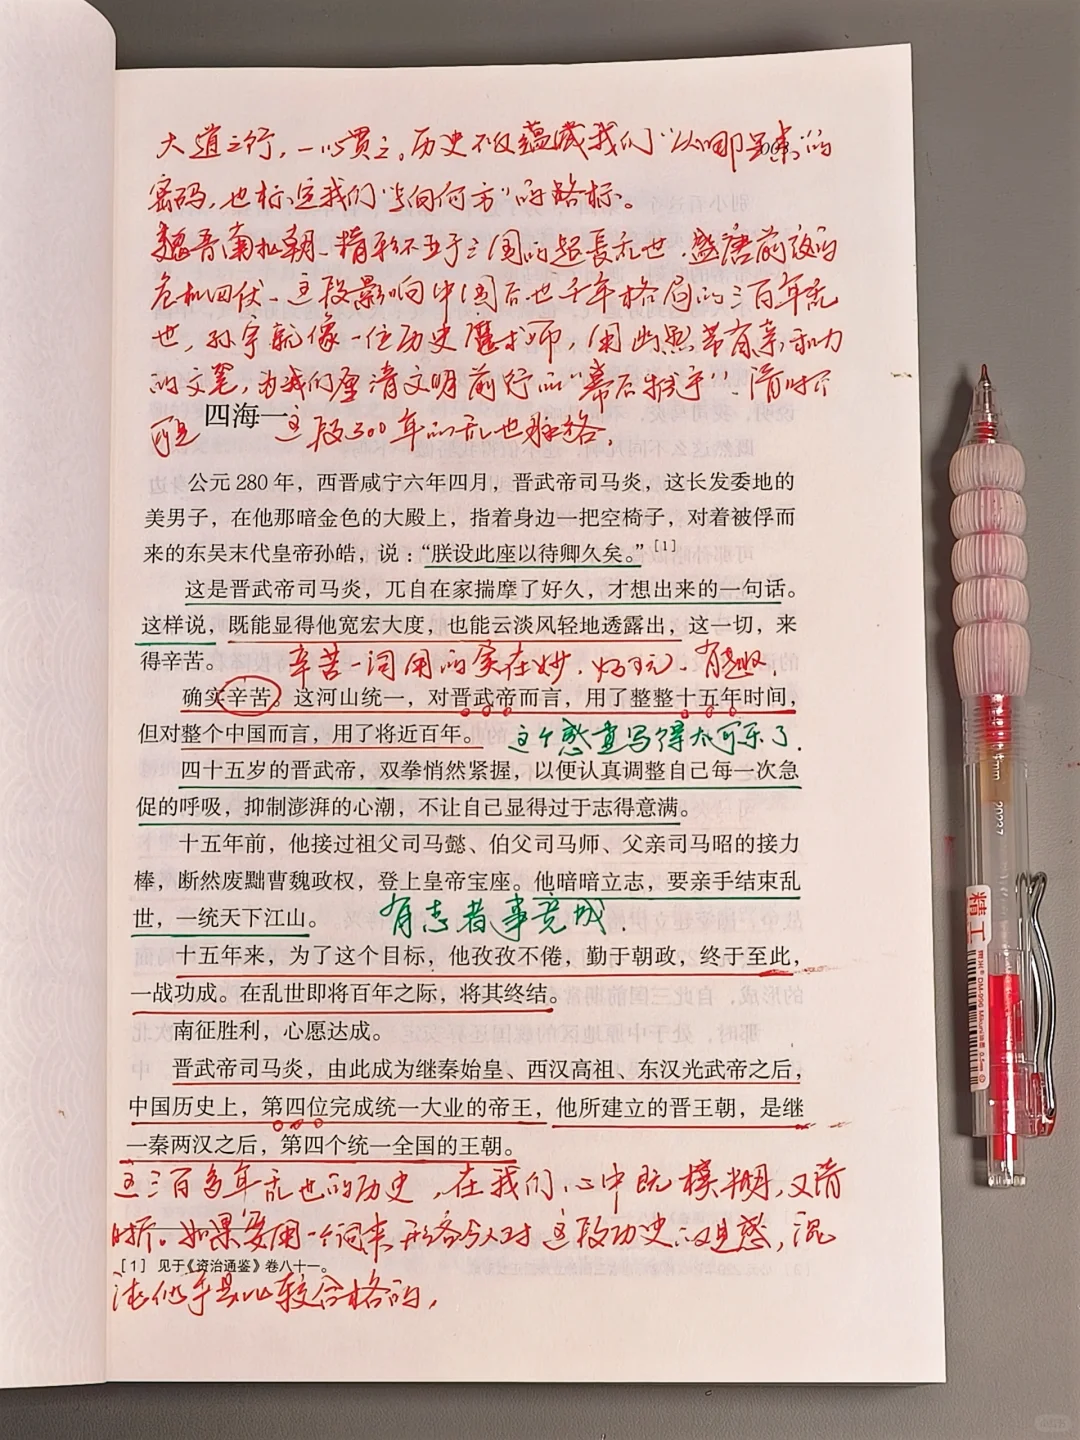 大道之行，一以贯之。历史不仅蕴藏我们“从哪里来”的
密码，也标定我们“当向何方”的路标。
魏晋南北朝、精彩不亚于三国的超长乱世、盛唐前夜的
危机四伏、这段影响中国后世千年格局的三百年乱
世，孙宇就像一位历史魔术师，用幽默带有亲和力
的文笔，为我们厘清文明前行的“幕后推手”、清晰了
四海一
这段300年的乱世脉络，
公元280年，西晋咸宁六年四月，晋武帝司马炎，这长发委地的
美男子，在他那暗金色的大殿上，指着身边一把空椅子，对着被俘而
来的东吴末代皇帝孙皓，说：“朕设此座以待卿久矣。”[1]
这是晋武帝司马炎，兀自在家揣摩了好久，才想出来的一句话。
这样说，既能显得他宽宏大度，也能云淡风轻地透露出，这一切，来
得辛苦。
辛苦一词用的实在妙、好玩、有趣、
确实辛苦。这河山统一，对晋武帝而言，用了整整十五年时间，
但对整个中国而言，用了将近百年。
这个感觉写得太可乐了、
四十五岁的晋武帝，双拳悄然紧握，以便认真调整自己每一次急
促的呼吸，抑制澎湃的心潮，不让自己显得过于志得意满。
十五年前，他接过祖父司马懿、伯父司马师、父亲司马昭的接力
棒，断然废黜曹魏政权，登上皇帝宝座。他暗暗立志，要亲手结束乱
世，一统天下江山。
有志者事竟成、
十五年来，为了这个目标，他孜孜不倦，勤于朝政，终于至此，
一战功成。在乱世即将百年之际，将其终结。
南征胜利，心愿达成。
晋武帝司马炎，由此成为继秦始皇、西汉高祖、东汉光武帝之后，
中国历史上，第四位完成统一大业的帝王，他所建立的晋王朝，是继
一秦两汉之后，第四个统一全国的王朝。
这三百多年乱世的历史，在我们心中既模糊，又清
晰。如果要用一个词来形容今人对这段历史的观感，混
[1] 见于《资治通鉴》卷八十一。
沌似乎是比较合格的，
精工